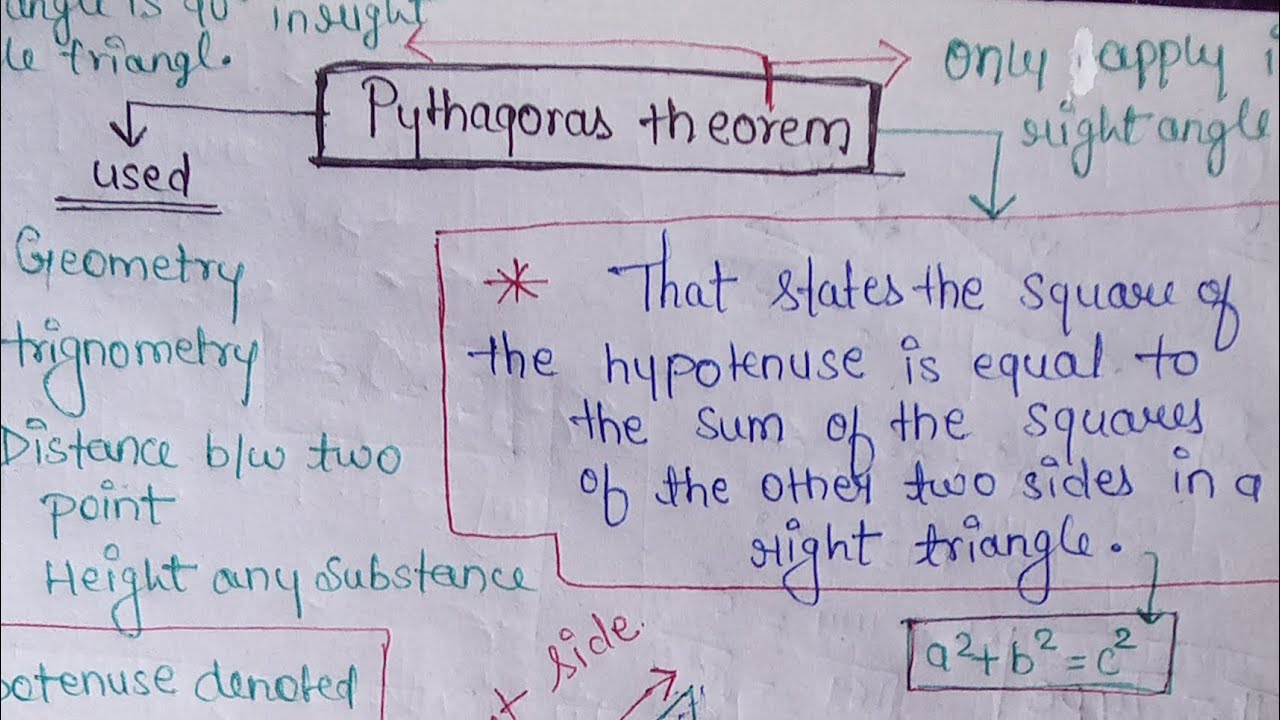 angle is 90° in right
le triangl.
Only apply i
right angle
Pythagoras theorem
used
Geometry
trignometry
Distance b/w two
point
Height any substance
* That states the square of
the hypotenuse is equal to
the sum of the squares
of the other two sides in a
right triangle.
a²+b²=c²
side.
potenuse denoted